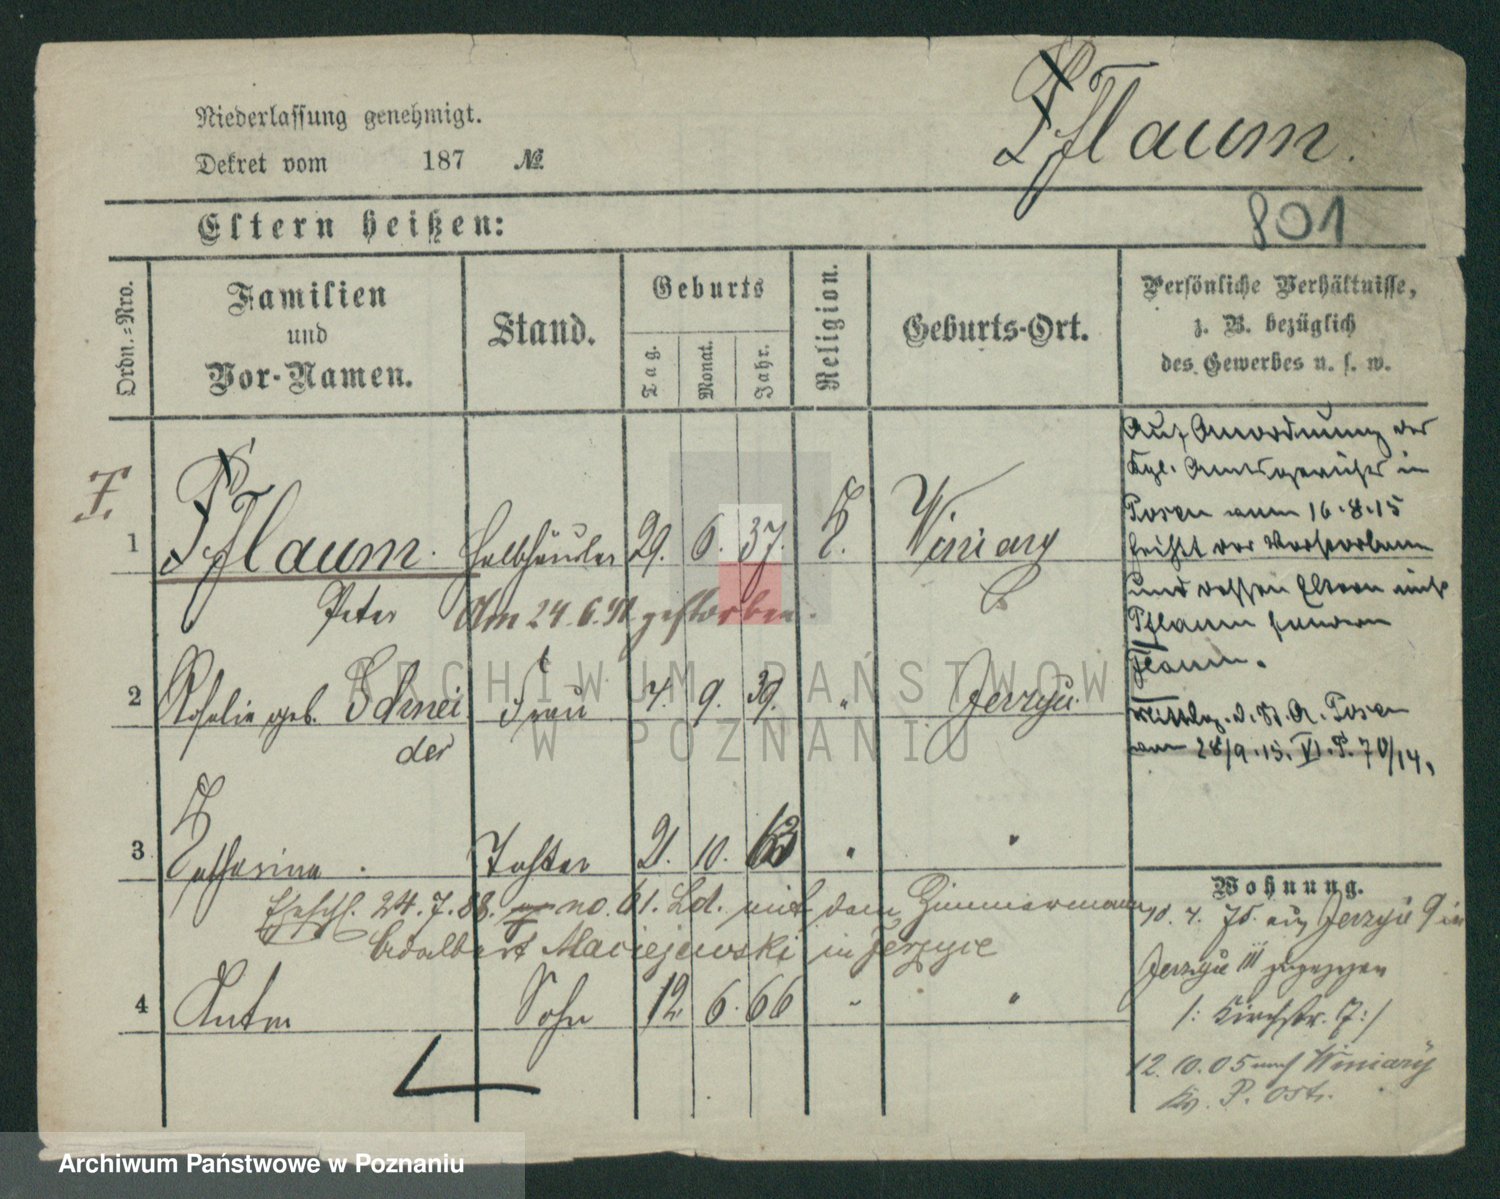 Niederlassung genehmigt.
Dekret vom 187 №
Pflaum.
801
Eltern heißen:
Ordn.-Nro.
Familien
und
Vor-Namen.
Stand.
Geburts
Tag.
Monat.
Jahr.
Religion.
Geburts-Ort.
Persönliche Verhältnisse,
z. B. bezüglich
des Gewerbes u. s. w.
F.
1 Pflaum. Halbhäusler 29. 6. 37. K. Winiary
Peter Am 24.6.91 gestorben.
2 Rosalie geb. Schnei Frau 7. 9. 39. " Jerzyce
der
3 Katharina Tochter 21. 10. 63 " "
Eheschl. 24.7.88. no. 61. Ld. mit dem Zimmermann
Adalbert Maciejewski in Jerzyce
4 Anton Sohn 12 6. 66 " "
Auf Anordnung des
Kgl. Amtsgerichts in
Posen vom 16.8.15
heißt der Verstorbene
und dessen Eltern nicht
Pflaum sondern
Flaum.
Mittlg. d. St. A. Posen
vom 28/9.15. VI. P. 70/14.
Wohnung.
10. 4. 75. aus Jerzyce 9 in
Jerzyce III gezogen
/: Kirchstr. 7 :/
12.10.05 nach Winiary
Kr. P. Ost.
ARCHIWUM PAŃSTWOWE
W POZNANIU
Archiwum Państwowe w Poznaniu